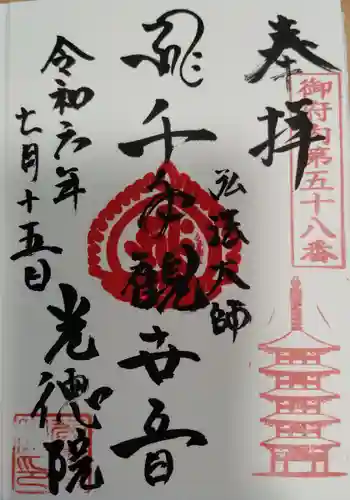 奉拝
御府内第五十八番
弘法大師
千手観世音
光徳院
令和六年
七月十五日